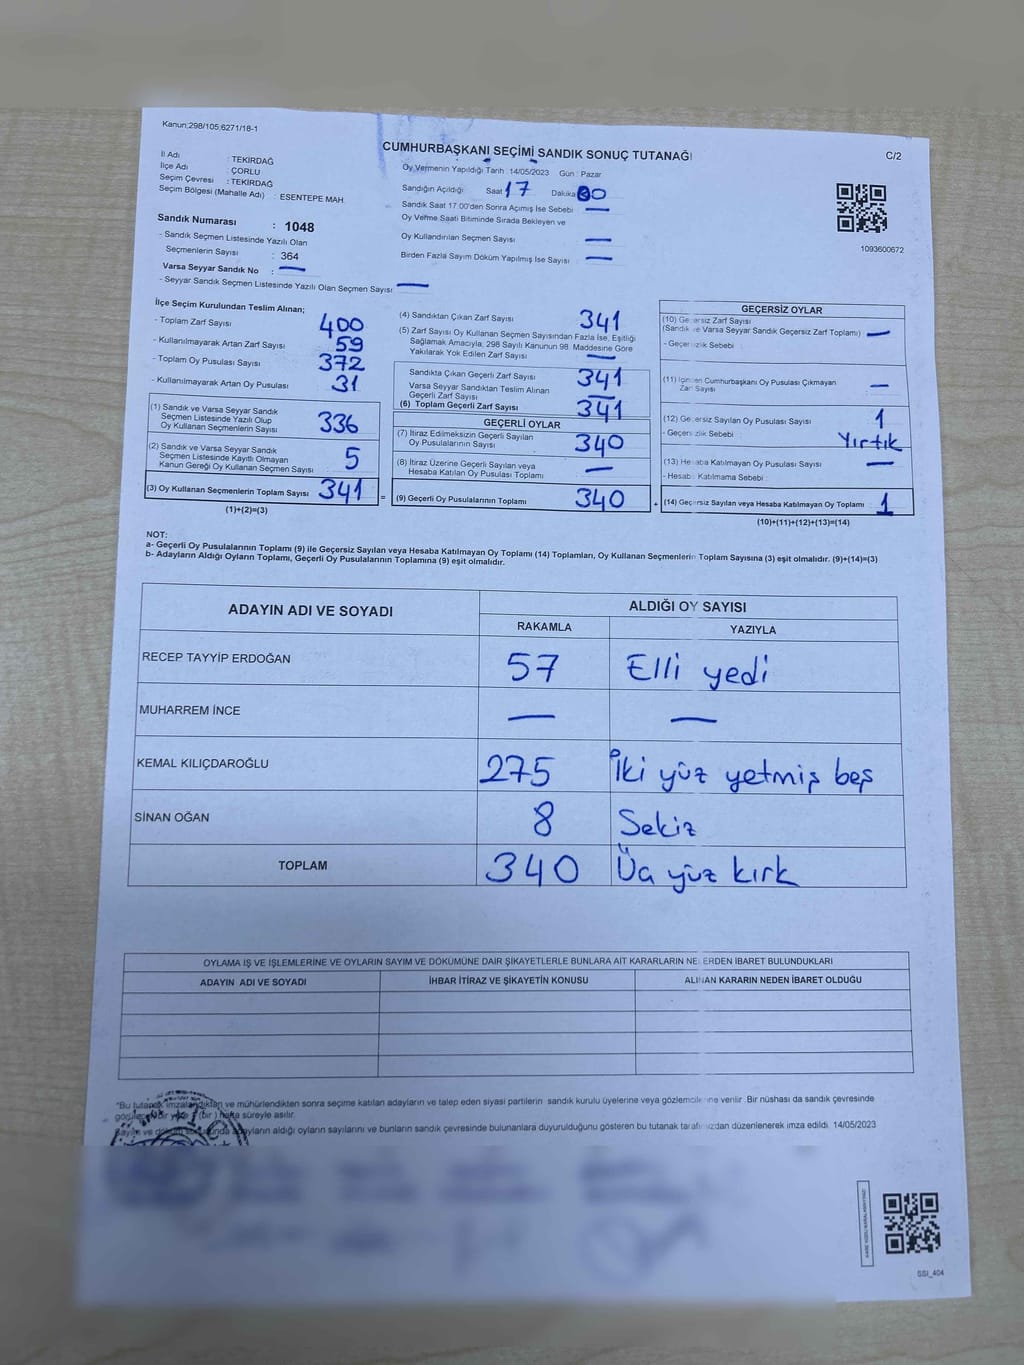 Kanun:298/105;6271/18-1
CUMHURBAŞKANI SEÇİMİ SANDIK SONUÇ TUTANAĞI
C/2
İl Adı : TEKİRDAĞ
İlçe Adı : ÇORLU
Seçim Çevresi : TEKİRDAĞ
Seçim Bölgesi (Mahalle Adı) : ESENTEPE MAH.
Oy Vermenin Yapıldığı Tarih : 14/05/2023 Gün : Pazar
Sandığın Açıldığı Saat 17 Dakika 00
Sandık Saat 17:00'den Sonra Açımış İse Sebebi —
Oy Verme Saati Bitiminde Sırada Bekleyen ve
Oy Kullandırılan Seçmen Sayısı —
Birden Fazla Sayım Döküm Yapılmış İse Sayısı —
1093600672
Sandık Numarası : 1048
- Sandık Seçmen Listesinde Yazılı Olan
Seçmenlerin Sayısı : 364
Varsa Seyyar Sandık No : —
- Seyyar Sandık Seçmen Listesinde Yazılı Olan Seçmen Sayısı : —
İlçe Seçim Kurulundan Teslim Alınan;
- Toplam Zarf Sayısı 400
- Kullanılmayarak Artan Zarf Sayısı 59
- Toplam Oy Pusulası Sayısı 372
- Kullanılmayarak Artan Oy Pusulası 31
(1) Sandık ve Varsa Seyyar Sandık
Seçmen Listesinde Yazılı Olup
Oy Kullanan Seçmenlerin Sayısı 336
(2) Sandık ve Varsa Seyyar Sandık
Seçmen Listesinde Kayıtlı Olmayan
Kanun Gereği Oy Kullanan Seçmen Sayısı 5
(3) Oy Kullanan Seçmenlerin Toplam Sayısı 341 =
(1)+(2)=(3)
(4) Sandıktan Çıkan Zarf Sayısı 341
(5) Zarf Sayısı Oy Kullanan Seçmen Sayısından Fazla İse, Eşitliği
Sağlamak Amacıyla, 298 Sayılı Kanunun 98. Maddesine Göre
Yakılarak Yok Edilen Zarf Sayısı —
Sandıkta Çıkan Geçerli Zarf Sayısı 341
Varsa Seyyar Sandıktan Teslim Alınan
Geçerli Zarf Sayısı —
(6) Toplam Geçerli Zarf Sayısı 341
GEÇERLİ OYLAR
(7) İtiraz Edilmeksizin Geçerli Sayılan
Oy Pusulalarının Sayısı 340
(8) İtiraz Üzerine Geçerli Sayılan veya
Hesaba Katılan Oy Pusulası Toplamı —
(9) Geçerli Oy Pusulalarının Toplamı 340 +
GEÇERSİZ OYLAR
(10) Geçersiz Zarf Sayısı
(Sandık ve Varsa Seyyar Sandık Geçersiz Zarf Toplamı) —
- Geçersizlik Sebebi :
(11) İçinden Cumhurbaşkanı Oy Pusulası Çıkmayan
Zarf Sayısı —
(12) Geçersiz Sayılan Oy Pusulası Sayısı 1
- Geçersizlik Sebebi : Yırtık
(13) Hesaba Katılmayan Oy Pusulası Sayısı —
- Hesaba Katılmama Sebebi :
(14) Geçersiz Sayılan veya Hesaba Katılmayan Oy Toplamı 1
(10)+(11)+(12)+(13)=(14)
NOT:
a- Geçerli Oy Pusulalarının Toplamı (9) ile Geçersiz Sayılan veya Hesaba Katılmayan Oy Toplamı (14) Toplamları, Oy Kullanan Seçmenlerin Toplam Sayısına (3) eşit olmalıdır. (9)+(14)=(3)
b- Adayların Aldığı Oyların Toplamı, Geçerli Oy Pusulalarının Toplamına (9) eşit olmalıdır.
ADAYIN ADI VE SOYADI
ALDIĞI OY SAYISI
RAKAMLA YAZIYLA
RECEP TAYYİP ERDOĞAN 57 Elli yedi
MUHARREM İNCE — —
KEMAL KILIÇDAROĞLU 275 İki yüz yetmiş beş
SİNAN OĞAN 8 Sekiz
TOPLAM 340 Üç yüz kırk
OYLAMA İŞ VE İŞLEMLERİNE VE OYLARIN SAYIM VE DÖKÜMÜNE DAİR ŞİKAYETLERLE BUNLARA AİT KARARLARIN NELERDEN İBARET BULUNDUKLARI
ADAYIN ADI VE SOYADI İHBAR İTİRAZ VE ŞİKAYETİN KONUSU ALINAN KARARIN NEDEN İBARET OLDUĞU
"Bu tutanak imzalandıktan ve mühürlendikten sonra seçime katılan adayların ve talep eden siyasi partilerin sandık kurulu üyelerine veya gözlemcilerine verilir. Bir nüshası da sandık çevresinde
(bir) hafta süreyle asılır.
adayların aldığı oyların sayılarını ve bunların sandık çevresinde bulunanlara duyurulduğunu gösteren bu tutanak tarafımızdan düzenlenerek imza edildi. 14/05/2023
SSI_404